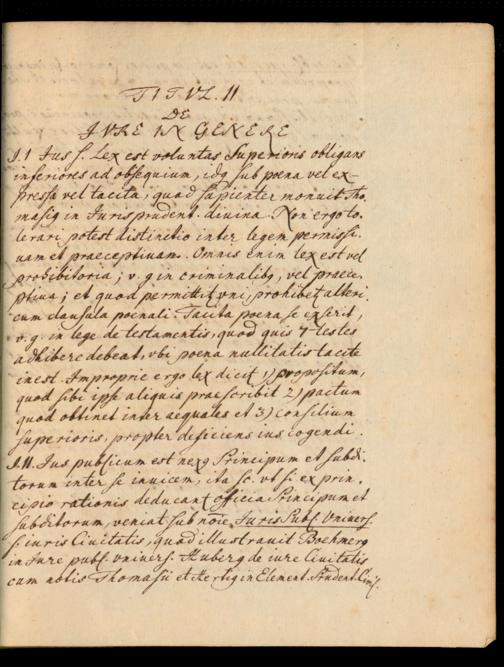 TITVL. II
DE
IVRE IN GENERE
§.I Ius s. Lex est voluntas Superioris obligans
inferiores ad obsequium, idq sub poena vel ex-
pressa vel tacita, quod sapienter monuit Tho-
masiq in Iurisprudent. divina. Non ergo to-
lerari potest distinctio inter legem permissi-
vam et praeceptivam. Omnis enim lex est vel
prohibitoria; v. g. in criminalibq, vel praece-
ptiva; et quod permittit vni, prohibet alteri
cum clausula poenali. Tacita poena se exserit,
v. g. in lege de testamentis, quod quis 7 testes
adhibere debeat, vbi poena nullitatis tacite
inest. Improprie ergo lex dicit 1) propositum,
quod sibi ipse aliquis praescribit 2) pactum
quod obtinet inter aequales et 3) consilium
superioris, propter deficiens ius cogendi.
§.II. Ius publicum est nexq Principum et subdi-
torum inter se invicem, ita sc. vt si ex prin-
cipio rationis deducant officia Principum et
subditorum, veniat sub noie Iuris Publ. Vnivers.
s. iuris Civitatis, quod illustravit Boehmerq
in Iure publ. vnivers. Huberq de iure Civitatis
cum notis Thomasii et Hertiq in Element. Prudent. Civil.